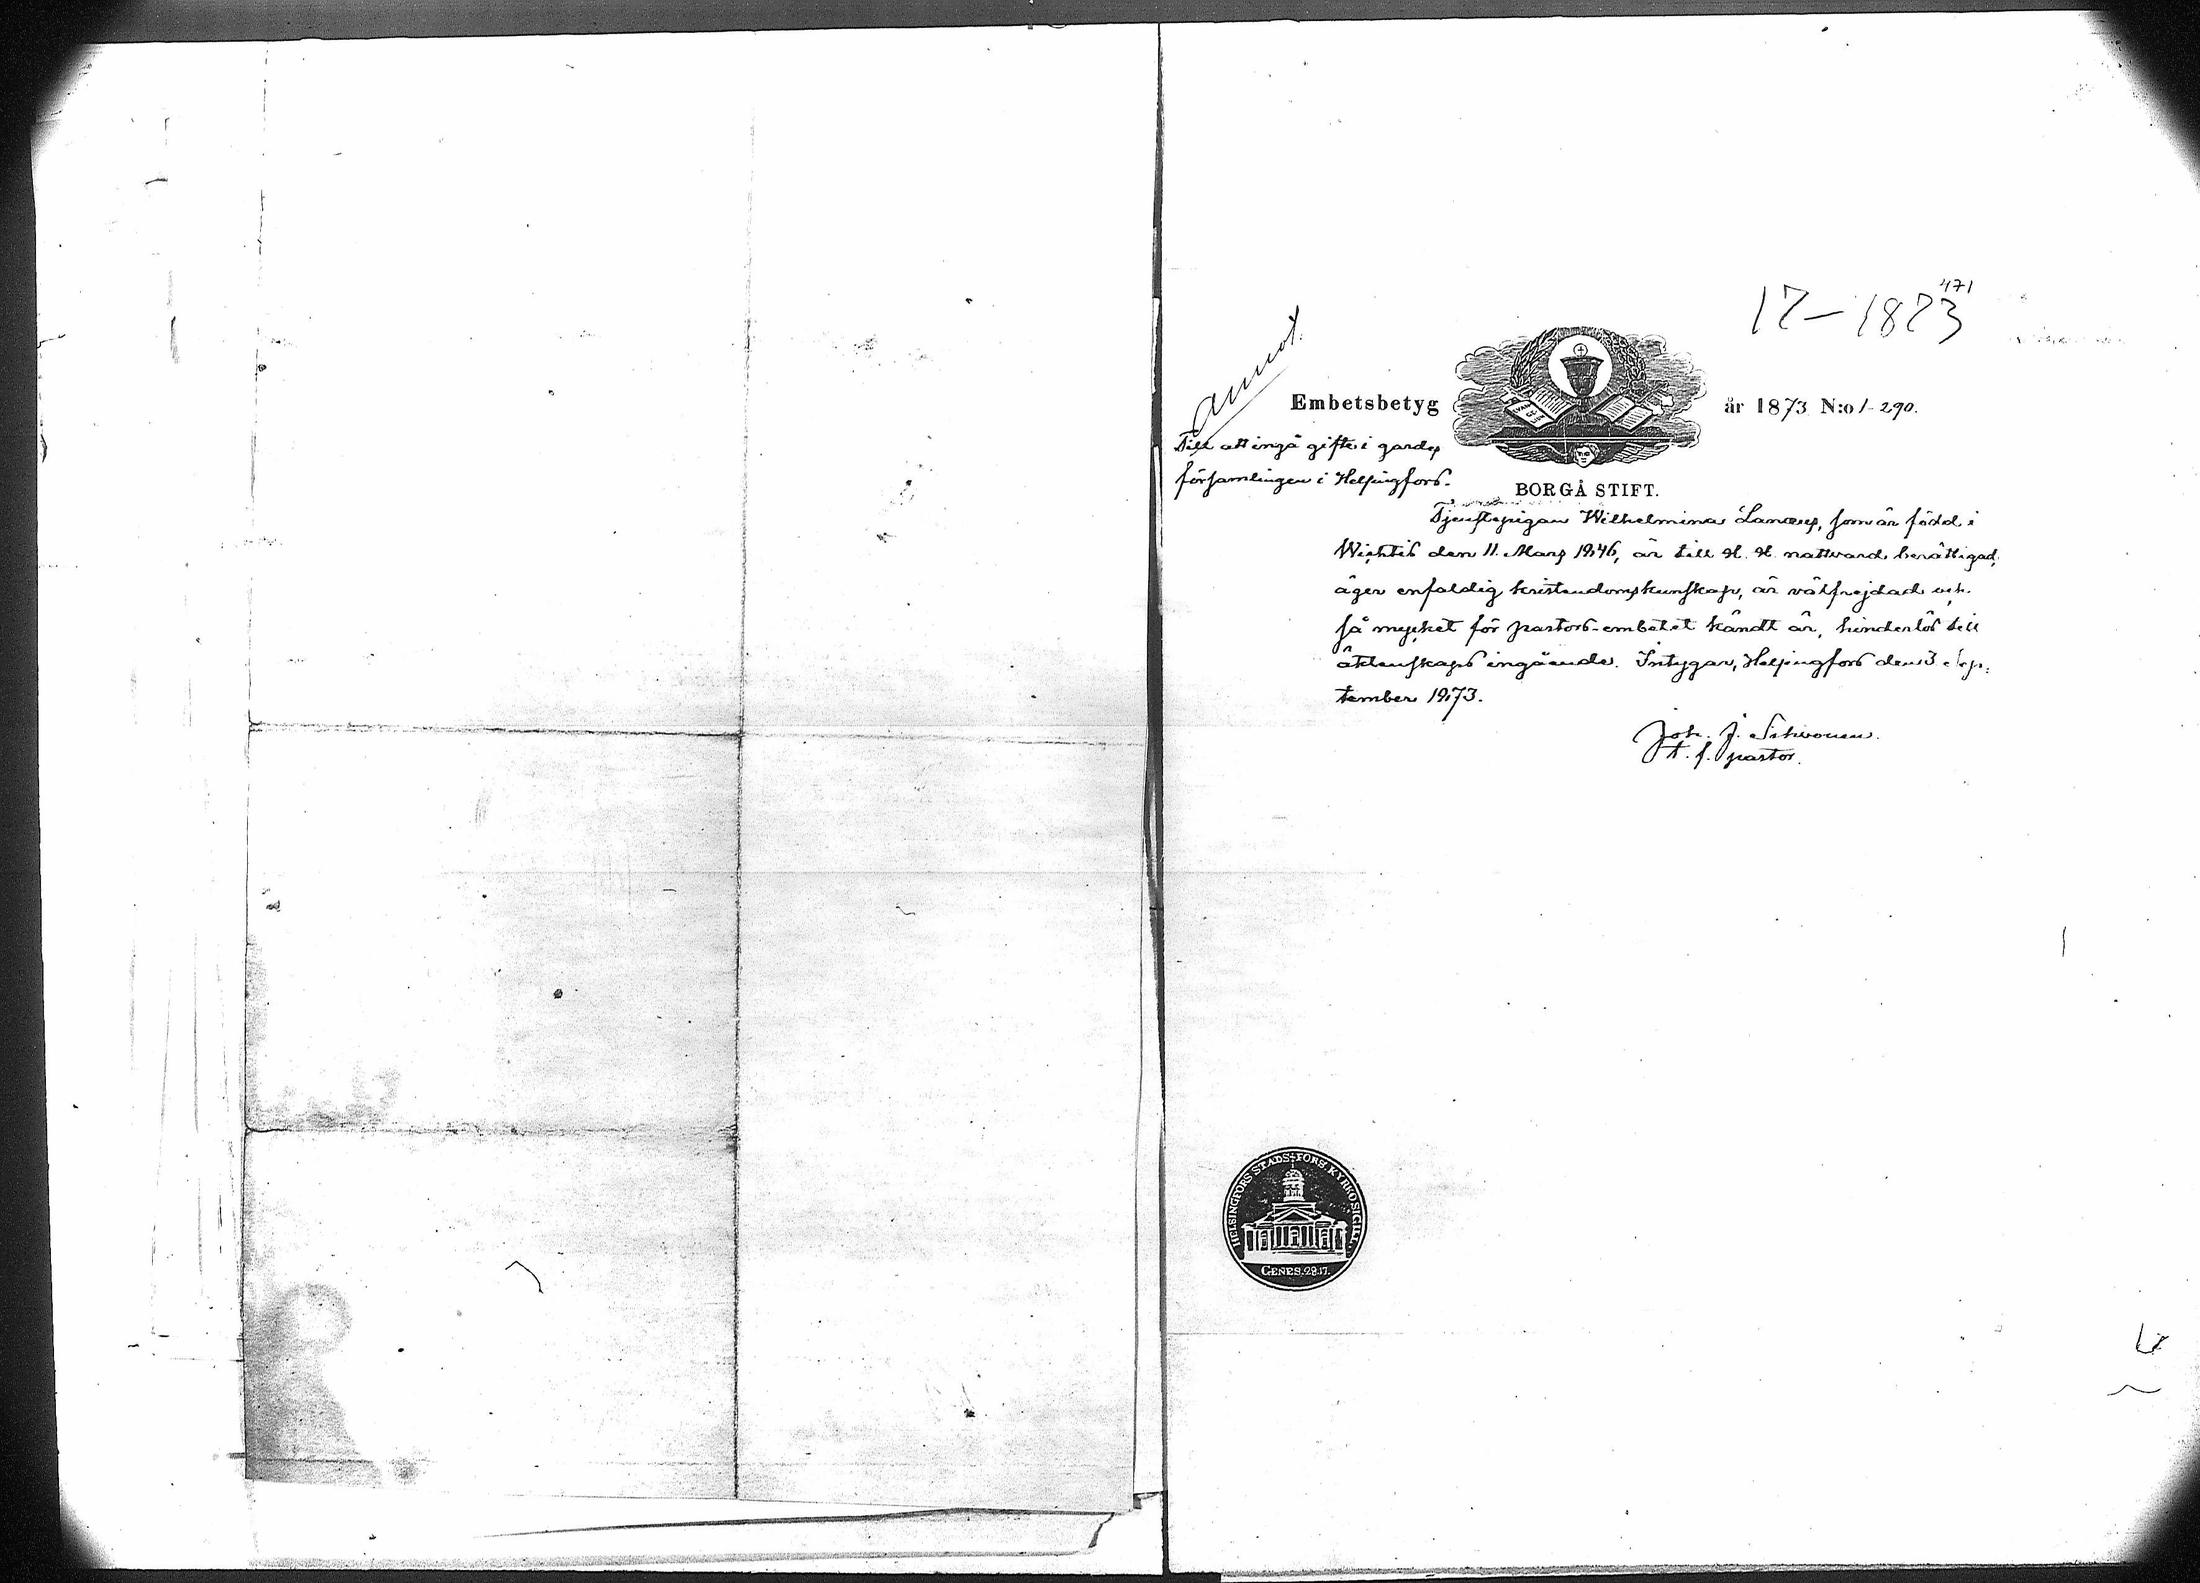 471
17-1873
annot.
Embetsbetyg år 1873 N:o 1290.
Till att ingå gifte i gardes
församlingen i Helsingfors.
BORGÅ STIFT.
Tjenstepigan Wilhelmina, som är född i
Wichtis den 11 Mars 1846, är till H. H. nattvard berättigad,
äger enfaldig kristendomskunskap, är välfrejdad och
så mycket för pastors-embetet kändt är, hinderlös till
äktenskaps ingående. Intygar, Helsingfors den 3 Sep-
tember 1873.
Joh. J. Sihvonen.
t. f. pastor.
HELSINGFORS STADS-FÖRS. KYRKOSIGILL.
GENES. 28.17.